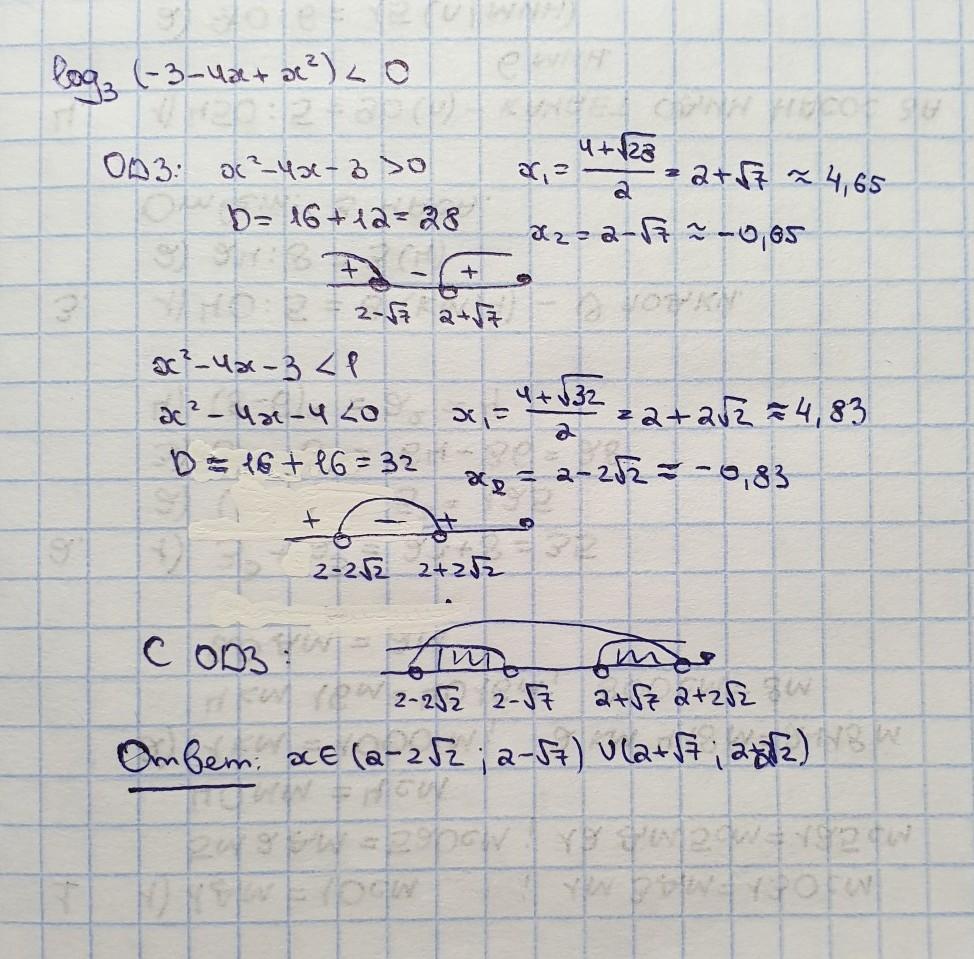 log₃ (-3-4x+x²) < 0
ОДЗ: x²-4x-3 >0
D= 16+12=28
x₁= (4+√28)/2 = 2+√7 ≈ 4,65
x₂ = 2-√7 ≈ -0,65
+ - +
2-√7 2+√7
x²-4x-3 <1
x²-4x-4<0
D = 16+16=32
x₁= (4+√32)/2 = 2+2√2 ≈ 4,83
x₂ = 2-2√2 ≈ -0,83
+ - +
2-2√2 2+2√2
С ОДЗ:
2-2√2 2-√7 2+√7 2+2√2
Ответ: x∈ (2-2√2 ; 2-√7) ∪(2+√7 ; 2+2√2)